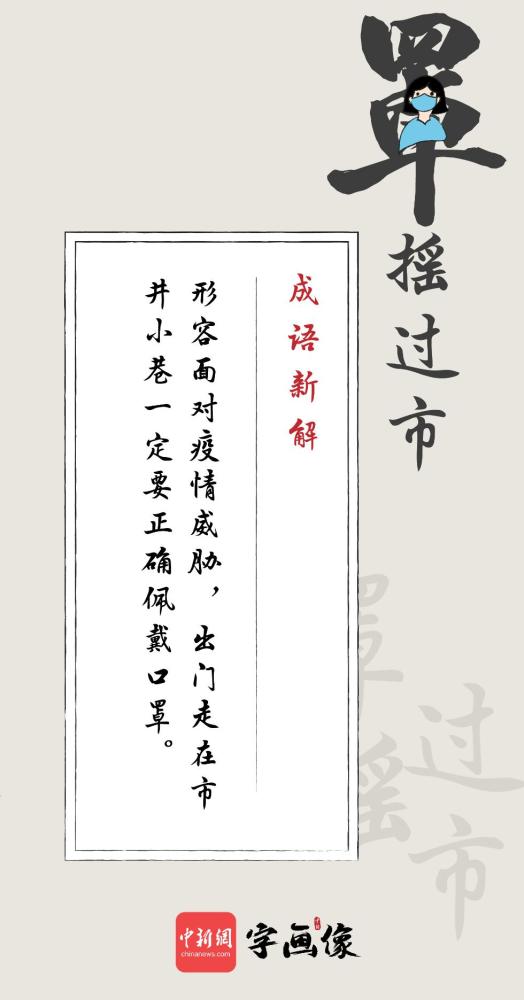 罩摇过市
成语新解
形容面对疫情威胁，出门走在市
井小巷一定要正确佩戴口罩。
罩摇过市
中新網
chinanews.com
字画像